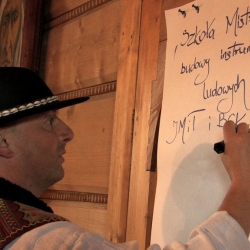 "Szkoła Mist
budowy instru
ludowych
IMiT i